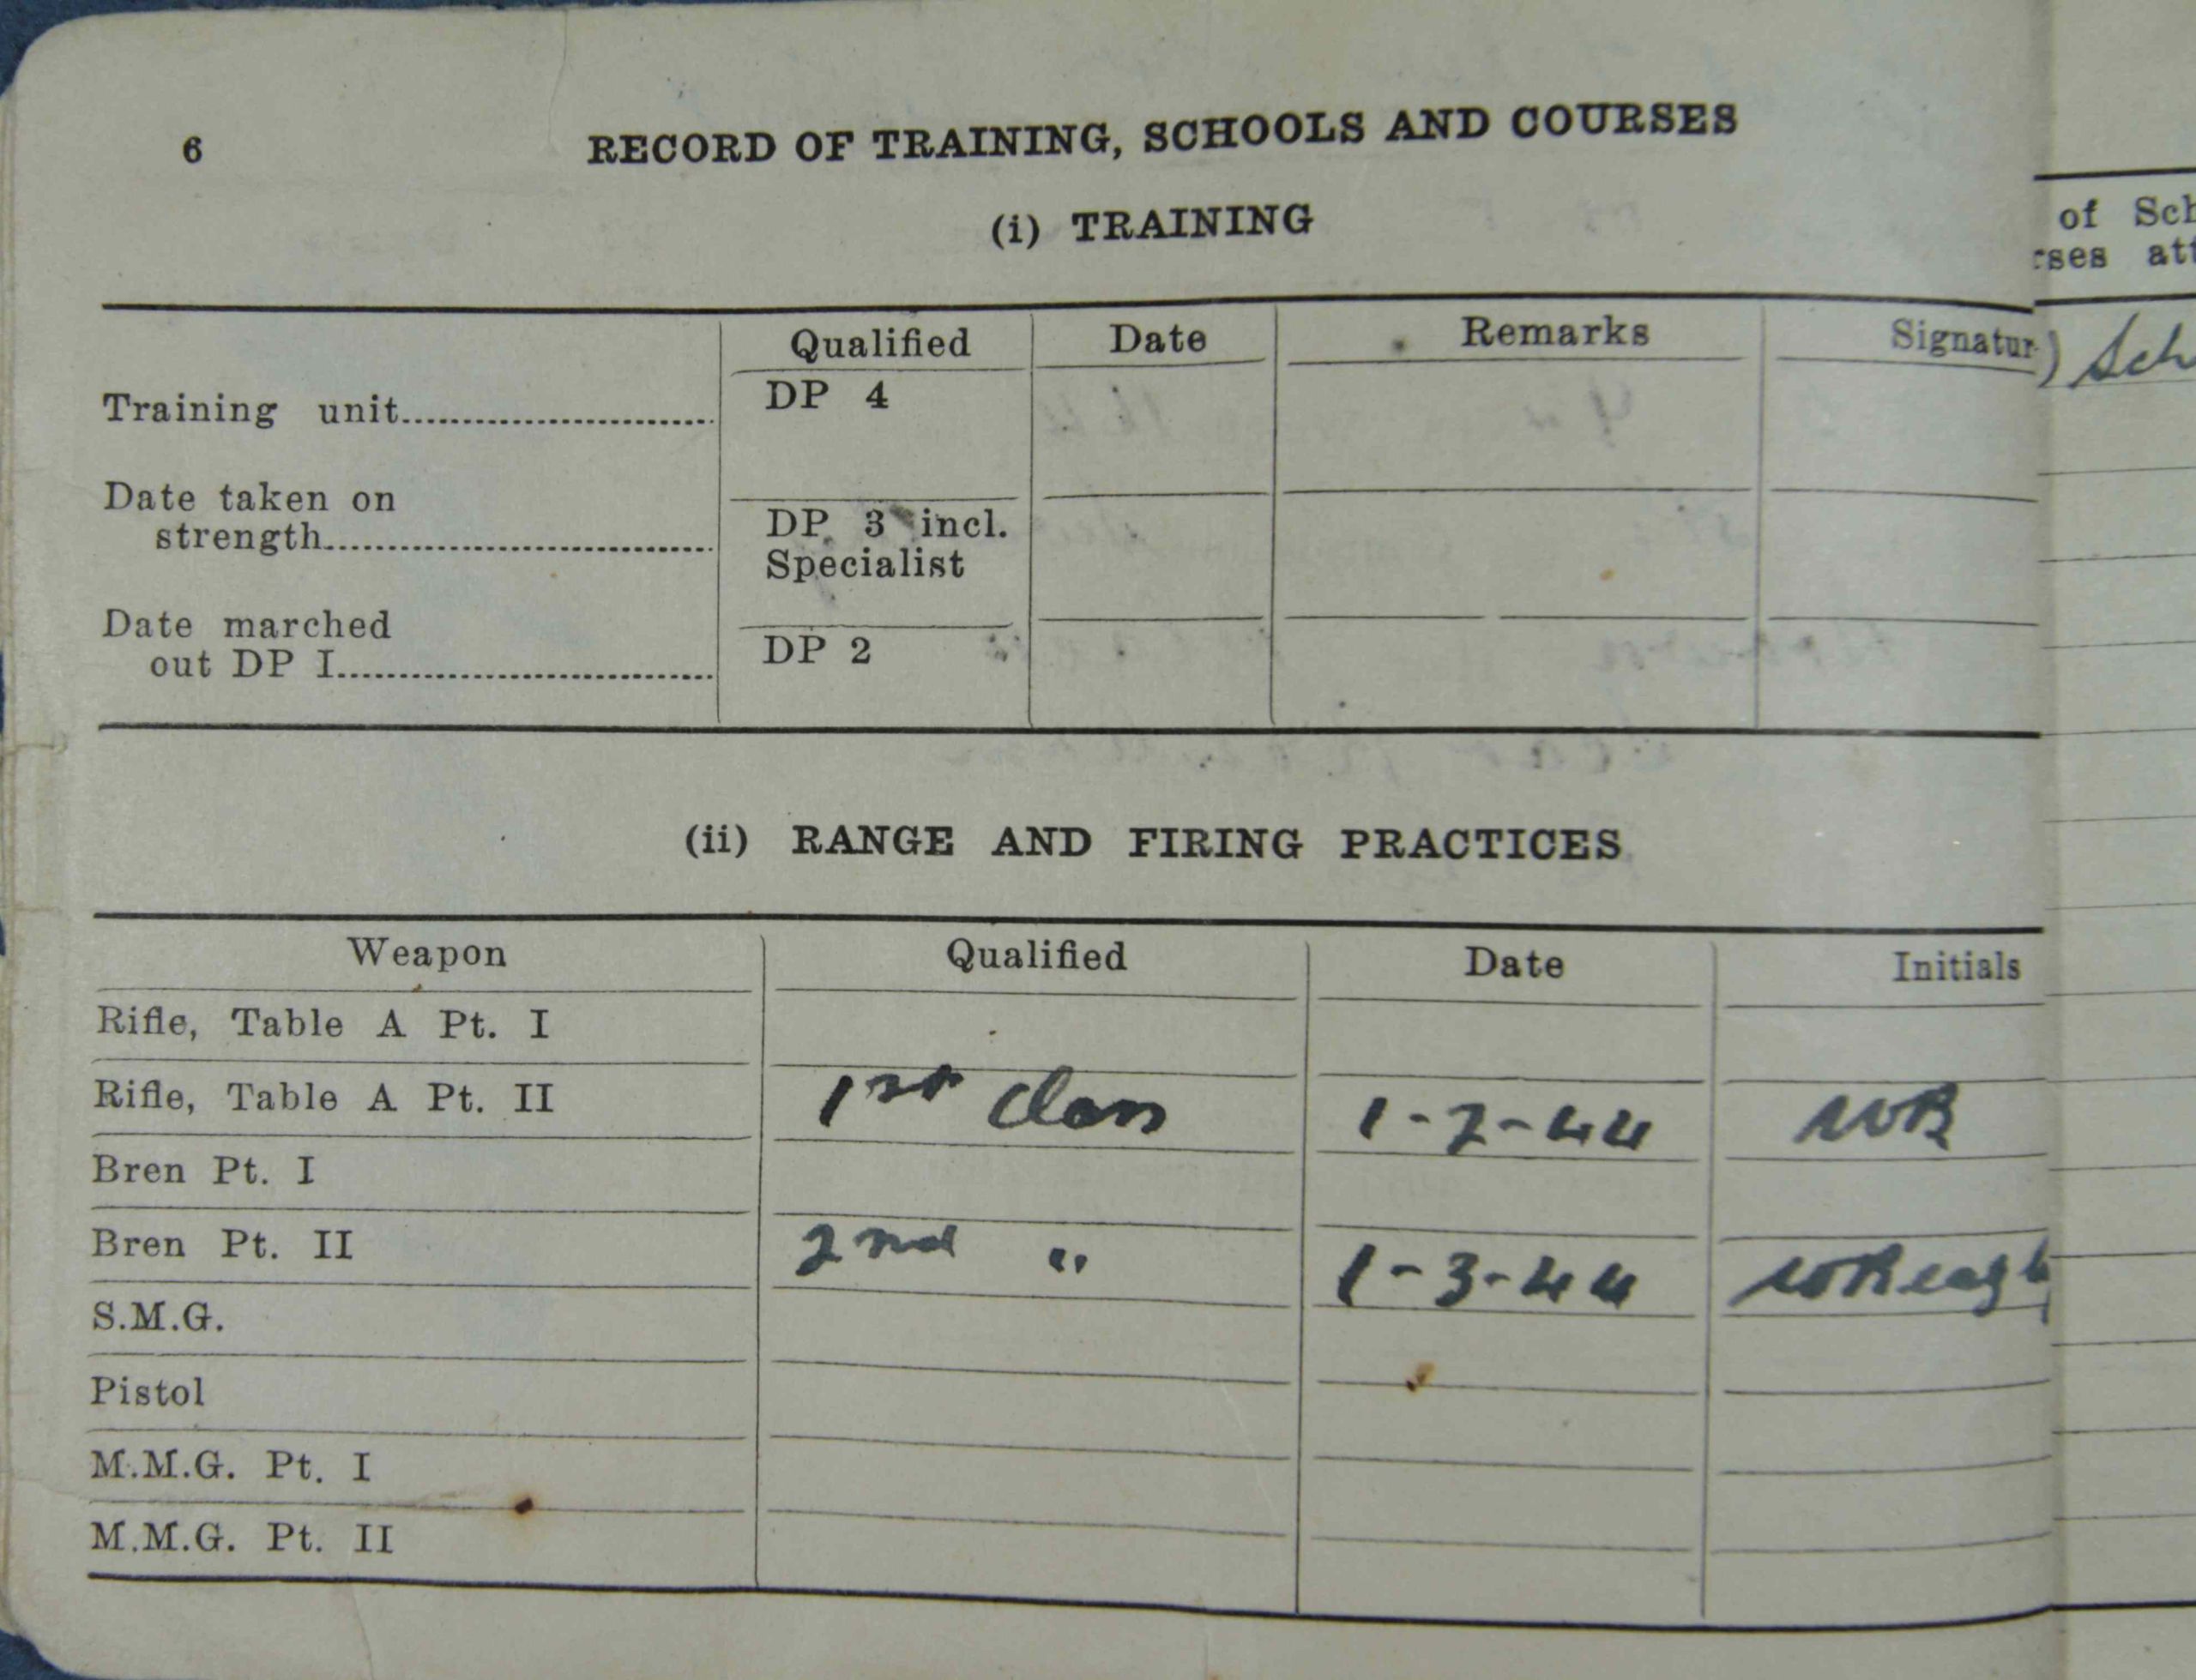 6 RECORD OF TRAINING, SCHOOLS AND COURSES
(i) TRAINING
Qualified Date Remarks Signatur
Training unit DP 4
Date taken on
strength DP 3 incl.
Specialist
Date marched
out DP I DP 2
(ii) RANGE AND FIRING PRACTICES
Weapon Qualified Date Initials
Rifle, Table A Pt. I
Rifle, Table A Pt. II 1st Class 1-2-44 WR
Bren Pt. I
Bren Pt. II 2nd " 1-3-44
S.M.G.
Pistol
M.M.G. Pt. I
M.M.G. Pt. II
of Sch
rses att
) Sch